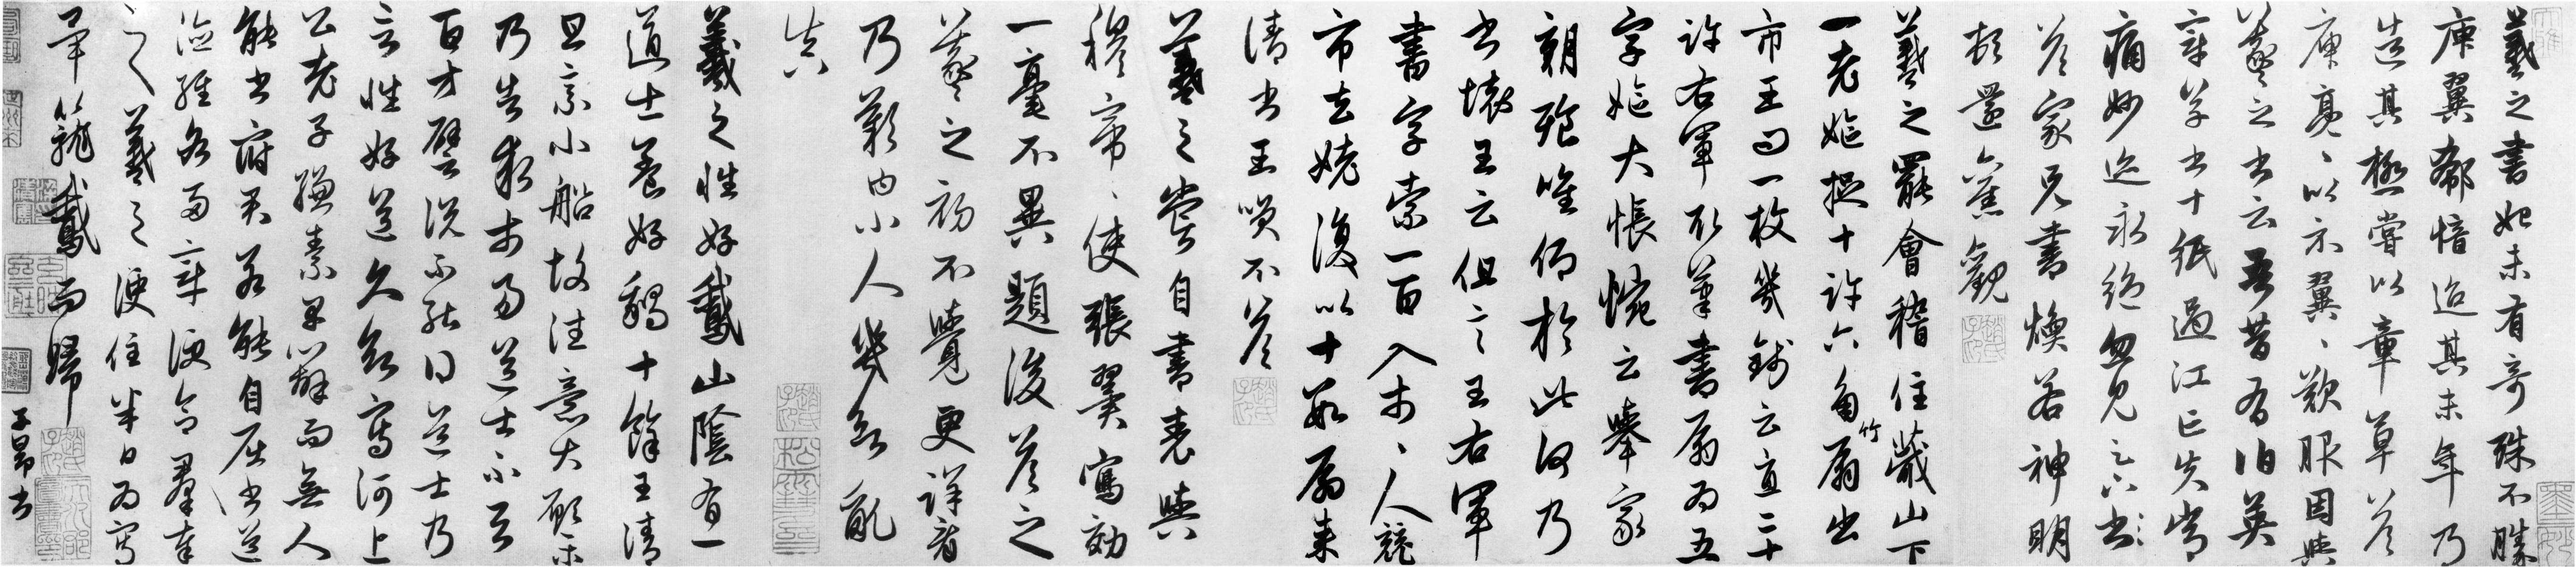 羲之書初未有奇殊不勝
庾翼郗愔迨其末年乃
造其極嘗以章草答
庾亮亮以示翼翼歎服因與
羲之書云吾昔有伯英
章草書十紙過江亡失常
痛妙迹永絕忽見足下書
答家兄書煥若神明
頓還舊觀
羲之罷會稽住蕺山下
一老嫗捉十許六角竹扇出
市王問一枚幾錢云直二十
許右軍取筆書扇扇為五
字嫗大悵惋云舉家
朝飱唯仰於此何乃
書壞王云但言王右軍
書字索一百入市市人競
市去姥復以十數扇來
請書王笑不答
羲之嘗自書表與
穆帝帝使張翼寫效
一毫不異題後答之
羲之初不覺更詳看
乃歎曰小人幾欲亂
真
羲之性好鵞山陰有一
道士養好鵝十餘王清
旦乘小船故往意大願樂
乃告求市易道士不與
百方譬說不能得道士乃
言性好道久欲寫河上
公老子縑素早辦而無人
能書府君若能自屈書道
德經各兩章便合群奉
之羲之便住半日為寫
畢籠鵞而歸
子昂書